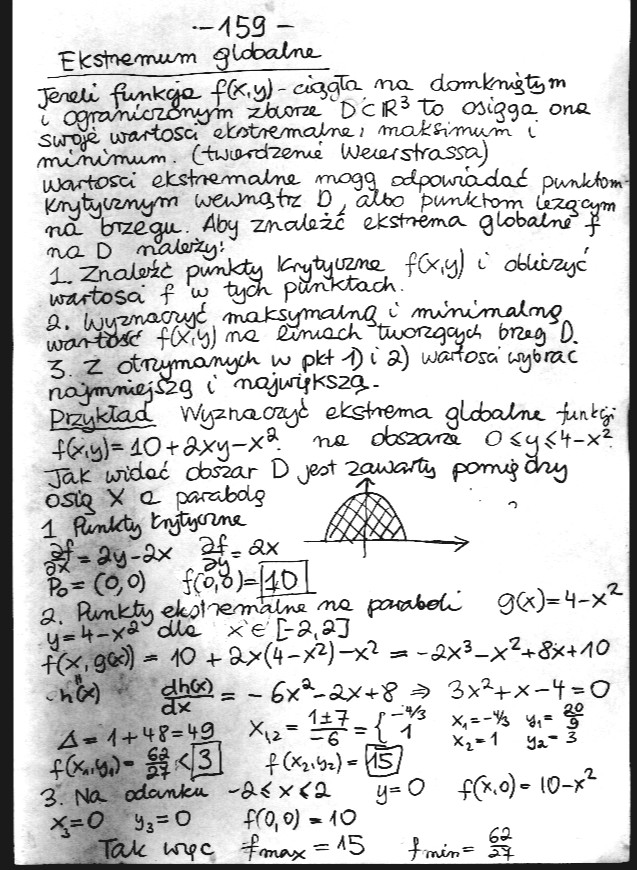 -159-
Ekstremum globalne
Jeżeli funkcja f(x,y) - ciągła na domkniętym
i ograniczonym zbiorze D⊂ℝ³ to osiąga ona
swoje wartości ekstremalne, maksimum i
minimum. (twierdzenie Weierstrassa)
Wartości ekstremalne mogą odpowiadać punktom
krytycznym wewnątrz D, albo punktom leżącym
na brzegu. Aby znaleźć ekstrema globalne f
na D należy:
1. Znaleźć punkty krytyczne f(x,y) i obliczyć
wartości f w tych punktach.
2. Wyznaczyć maksymalną i minimalną
wartość f(x,y) na liniach tworzących brzeg D.
3. Z otrzymanych w pkt 1) i 2) wartości wybrać
najmniejszą i największą.
Przykład Wyznaczyć ekstrema globalne funkcji
f(x,y)=10+2xy-x² na obszarze 0≤y≤4-x²
Jak widać obszar D jest zawarty pomiędzy
osią X a parabolą
1 Punkty krytyczne
∂f/∂x = 2y-2x ∂f/∂y = 2x
P₀ = (0,0) f(0,0)= 10
2. Punkty ekstremalne na paraboli g(x)=4-x²
y=4-x² dla x∈[-2,2]
f(x,g(x)) = 10 + 2x(4-x²)-x² = -2x³-x²+8x+10
h(x) dh(x)/dx = -6x²-2x+8 ⇒ 3x²+x-4=0
Δ = 1+48=49 x₁,₂ = (1±7)/-6 = { -4/3 1 x₁=-4/3 y₁=20/9 x₂=1 y₂=3
f(x₁,y₁)= 62/27 < 3 f(x₂,y₂)= 15
3. Na odcinku -2≤x≤2 y=0 f(x,0)=10-x²
x₃=0 y₃=0 f(0,0)=10
Tak więc fmax=15 fmin= 62/27